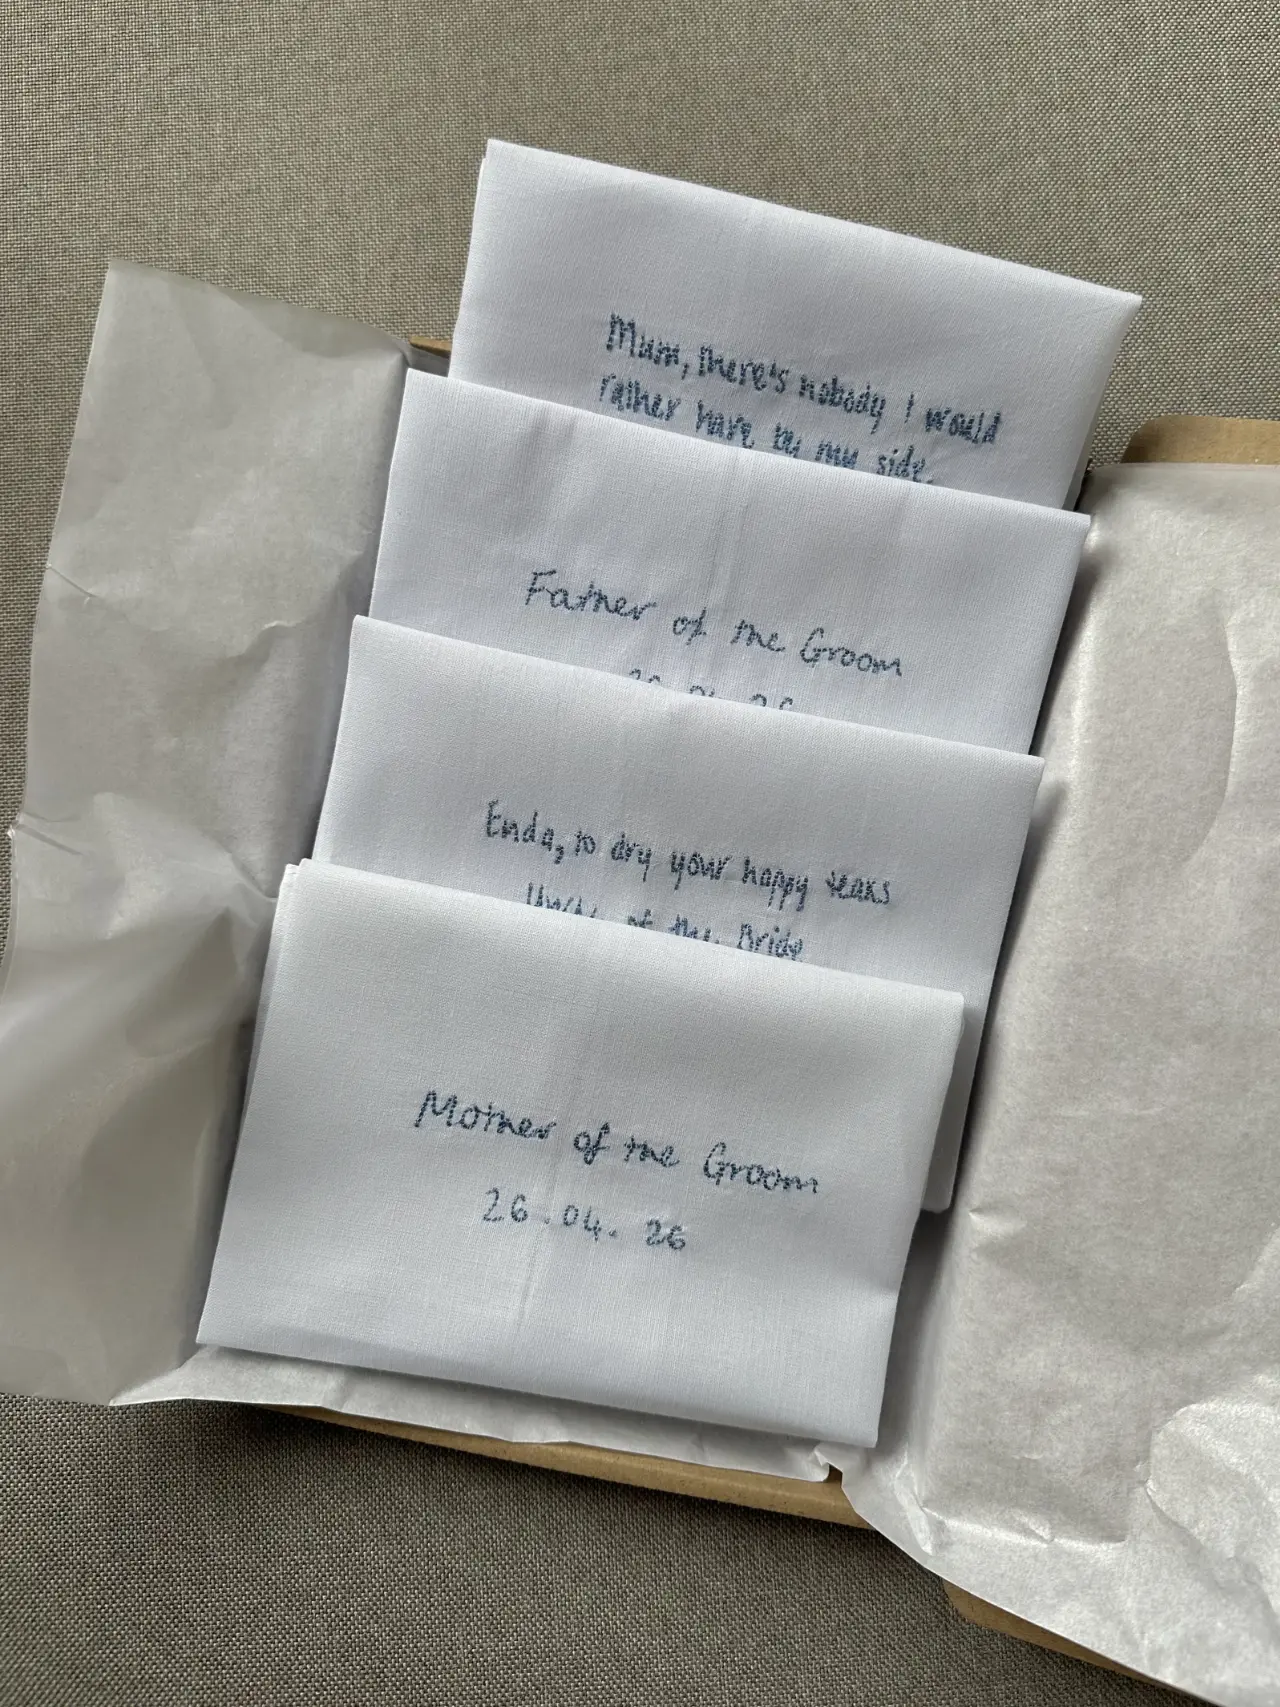 Mum, there's nobody I would
rather have by my side.
Father of the Groom
Enda, to dry your happy tears
Uncle of the Bride
Mother of the Groom
26.04.26